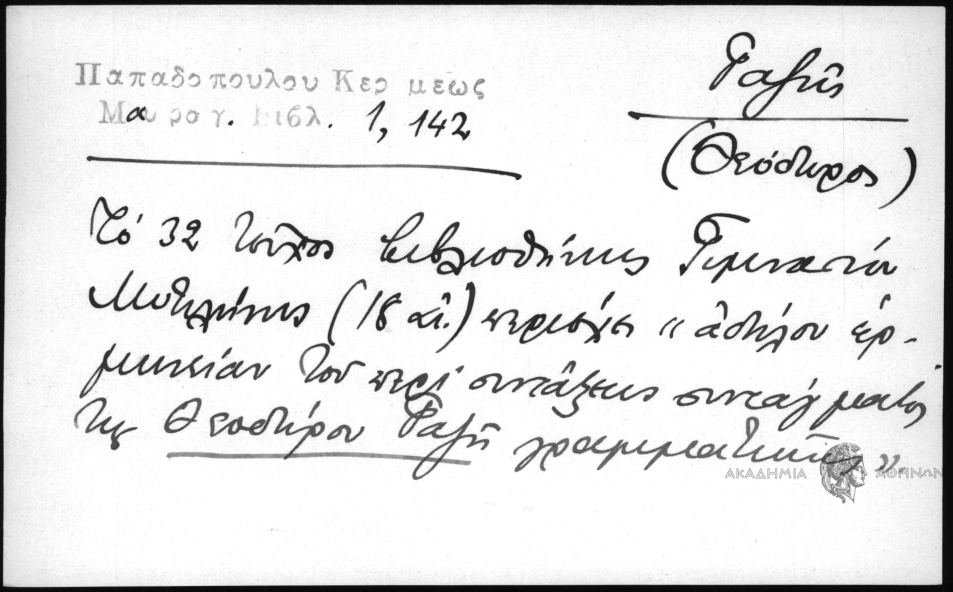 Παπαδοπουλου Κερ μεως
Μαυρογ. Βιβλ. 1, 142
Γαζῆς
(Θεόδωρος)
Τό 32 τεῦχος βιβλιοθήκης Γυμνασίου
Μυτιλήνης (18 αἰ.) περιέχει "ἀδήλου ἑρ-
μηνείαν τοῦ περί συντάξεως συντάγματος
τῆς Θεοδώρου Γαζῆ γραμματικῆς".
ΑΚΑΔΗΜΙΑ ΑΘΗΝΩΝ